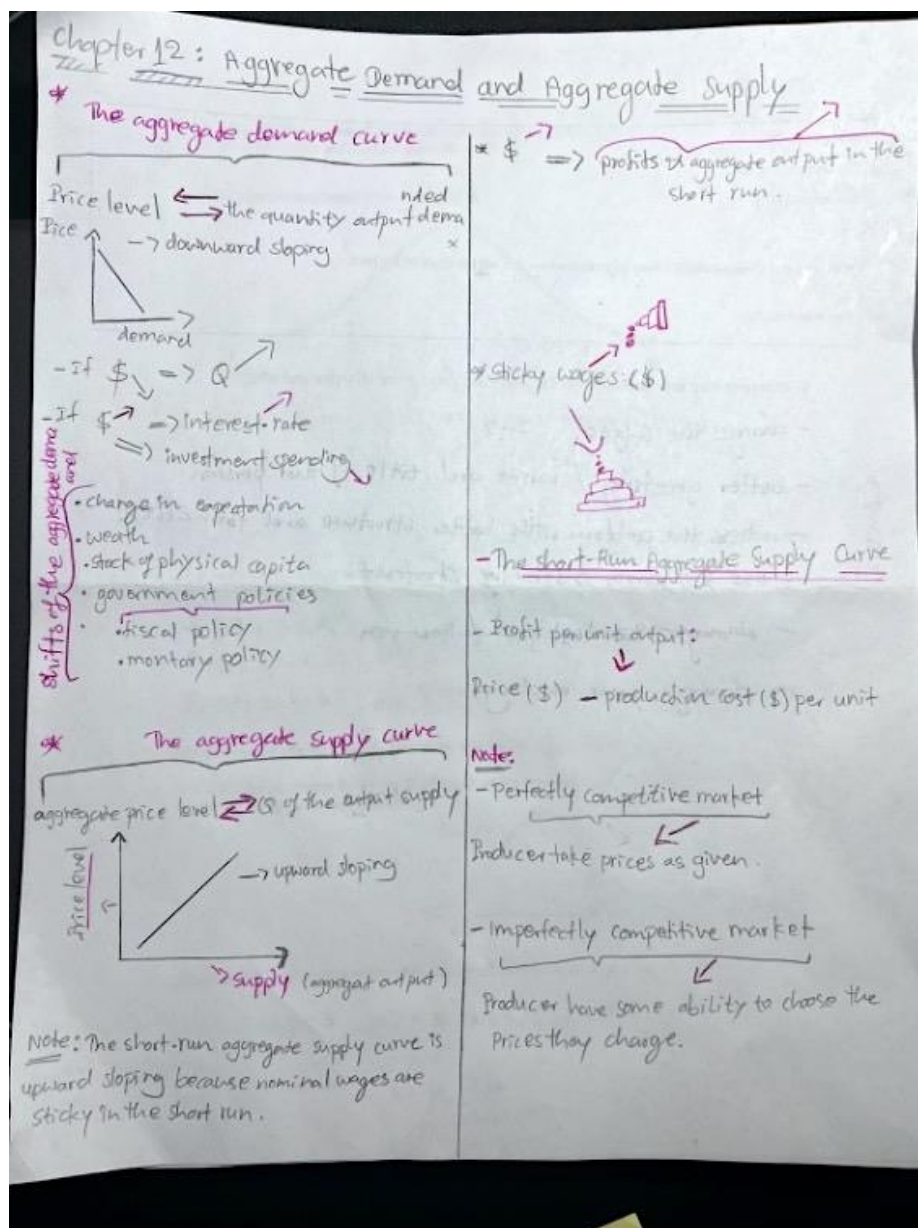 Chapter 12: Aggregate Demand and Aggregate Supply
* The aggregate demand curve
Price level ⇄ the quantity output demanded
Pice
-> downward sloping
demand
- If $ ↘ => Q ↗
- If $ ↗ => interest-rate ↗
=> investment spending ↘
shifts of the aggregate demand
• change in expectation
• weath
• stock of physical capita
• government policies
• fiscal policy
• montary policy
* The aggregate supply curve
aggregate price level ⇄ Q of the output supply
Price level
-> upward sloping
-> supply (aggregat output)
Note: The short-run aggregate supply curve is
upward sloping because nominal wages are
sticky in the short run.
* $ ↗ => profits & aggregate output in the
short run.
* Sticky wages ($)
- The short-Run Aggregate Supply Curve
- Profit per unit output:
Price ($) - production cost ($) per unit
Note:
- Perfectly competitive market
Producer take prices as given.
- Imperfectly competitive market
Producer have some ability to choose the
Prices they charge.